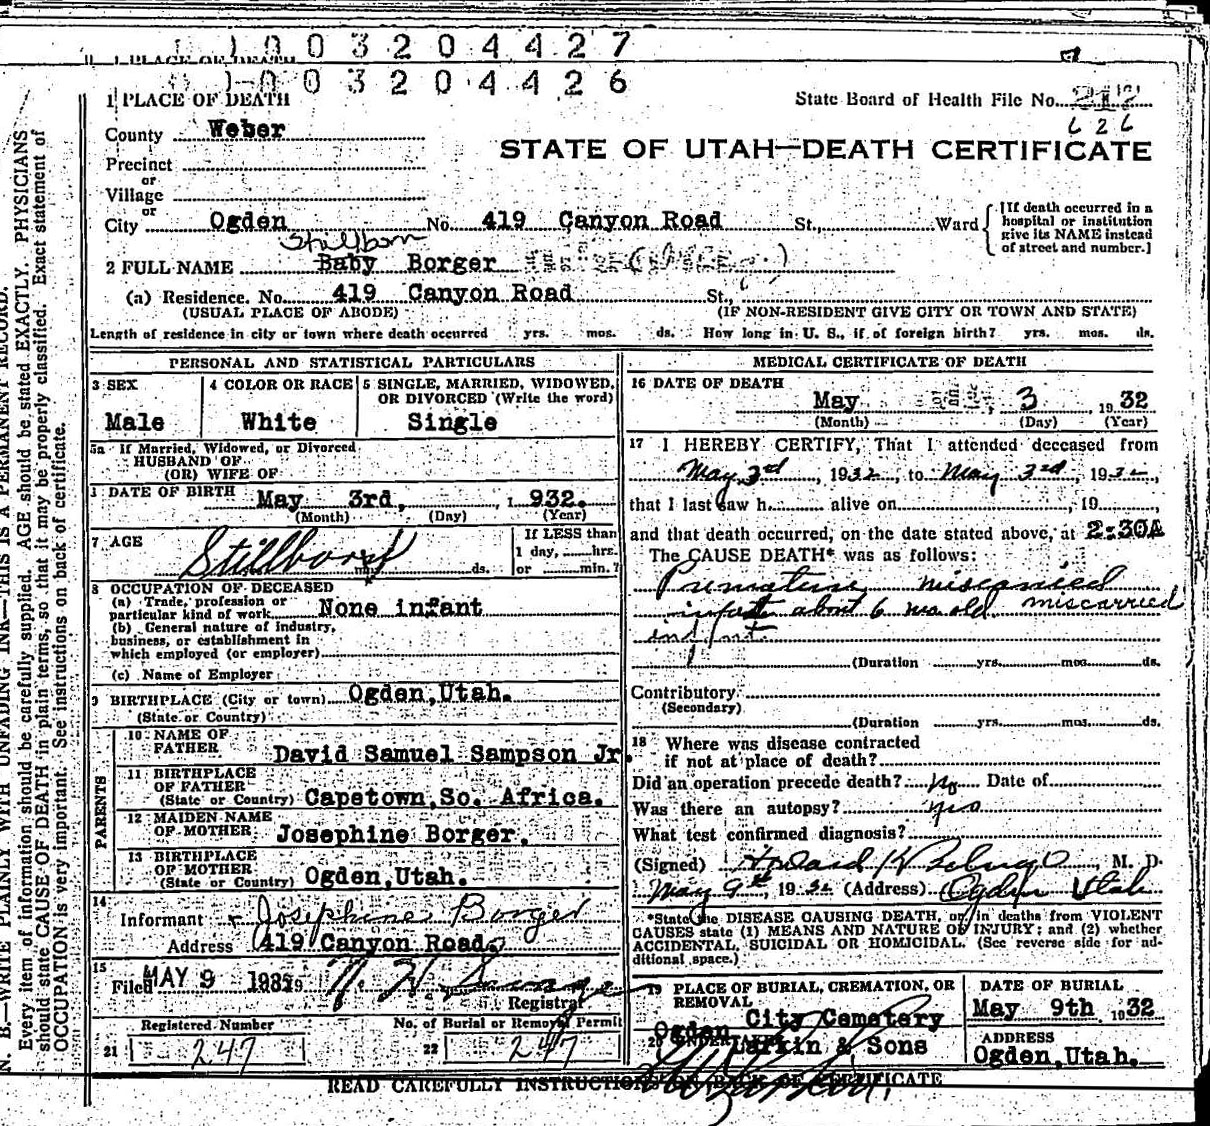 003204427
1 PLACE OF DEATH
003204426
1 PLACE OF DEATH
State Board of Health File No. 212
626
County Weber
STATE OF UTAH—DEATH CERTIFICATE
Precinct
or
Village
or
City Ogden No. 419 Canyon Road St., Ward
[If death occurred in a hospital or institution give its NAME instead of street and number.]
Stillborn
2 FULL NAME Baby Borger
(a) Residence. No. 419 Canyon Road St.,
(USUAL PLACE OF ABODE) (IF NON-RESIDENT GIVE CITY OR TOWN AND STATE)
Length of residence in city or town where death occurred yrs. mos. ds. How long in U. S., if of foreign birth? yrs. mos. ds.
PERSONAL AND STATISTICAL PARTICULARS
3 SEX
Male
4 COLOR OR RACE
White
5 SINGLE, MARRIED, WIDOWED,
OR DIVORCED (Write the word)
Single
5a If Married, Widowed, or Divorced
HUSBAND OF
(OR) WIFE OF
DATE OF BIRTH May 3rd, 1932.
(Month) (Day) (Year)
7 AGE
Stillborn
mos. ds.
If LESS than
1 day, hrs.
or min.?
8 OCCUPATION OF DECEASED
(a) Trade, profession or
particular kind of work None infant
(b) General nature of industry,
business, or establishment in
which employed (or employer)
(c) Name of Employer
9 BIRTHPLACE (City or town) Ogden, Utah.
(State or Country)
PARENTS
10 NAME OF
FATHER David Samuel Sampson Jr.
11 BIRTHPLACE
OF FATHER
(State or Country) Capetown, So. Africa.
12 MAIDEN NAME
OF MOTHER Josephine Borger.
13 BIRTHPLACE
OF MOTHER
(State or Country) Ogden, Utah.
14
Informant Josephine Borger
Address 419 Canyon Road.
15
Filed MAY 9 1932
Registrar
Registered Number
21 247
No. of Burial or Removal Permit
22 247
MEDICAL CERTIFICATE OF DEATH
16 DATE OF DEATH
May 3, 1932
(Month) (Day) (Year)
17 I HEREBY CERTIFY, That I attended deceased from
May 3rd, 1932, to May 3rd, 1932,
that I last saw h alive on , 19 ,
and that death occurred, on the date stated above, at 2:30A
The CAUSE DEATH* was as follows:
Premature miscarried
infant about 6 mos old miscarried
infant.
(Duration yrs. mos. ds.
Contributory
(Secondary)
(Duration yrs. mos. ds.
18 Where was disease contracted
if not at place of death?
Did an operation precede death? No Date of
Was there an autopsy? yes
What test confirmed diagnosis?
(Signed) Howard K , M. D.
May 9th, 1932 (Address) Ogden Utah
*State the DISEASE CAUSING DEATH, or, in deaths from VIOLENT
CAUSES state (1) MEANS AND NATURE OF INJURY; and (2) whether
ACCIDENTAL, SUICIDAL OR HOMICIDAL. (See reverse side for ad-
ditional space.)
19 PLACE OF BURIAL, CREMATION, OR
REMOVAL
Ogden City Cemetery
DATE OF BURIAL
May 9th 1932
20 UNDERTAKER
Larkin & Sons
ADDRESS
Ogden, Utah.
READ CAREFULLY INSTRUCTIONS ON BACK OF CERTIFICATE
N. B.—WRITE PLAINLY WITH UNFADING INK—THIS IS A PERMANENT RECORD.
Every item of information should be carefully supplied. AGE should be stated EXACTLY. PHYSICIANS
should state CAUSE OF DEATH in plain terms, so that it may be properly classified. Exact statement of
OCCUPATION is very important. See instructions on back of certificate.